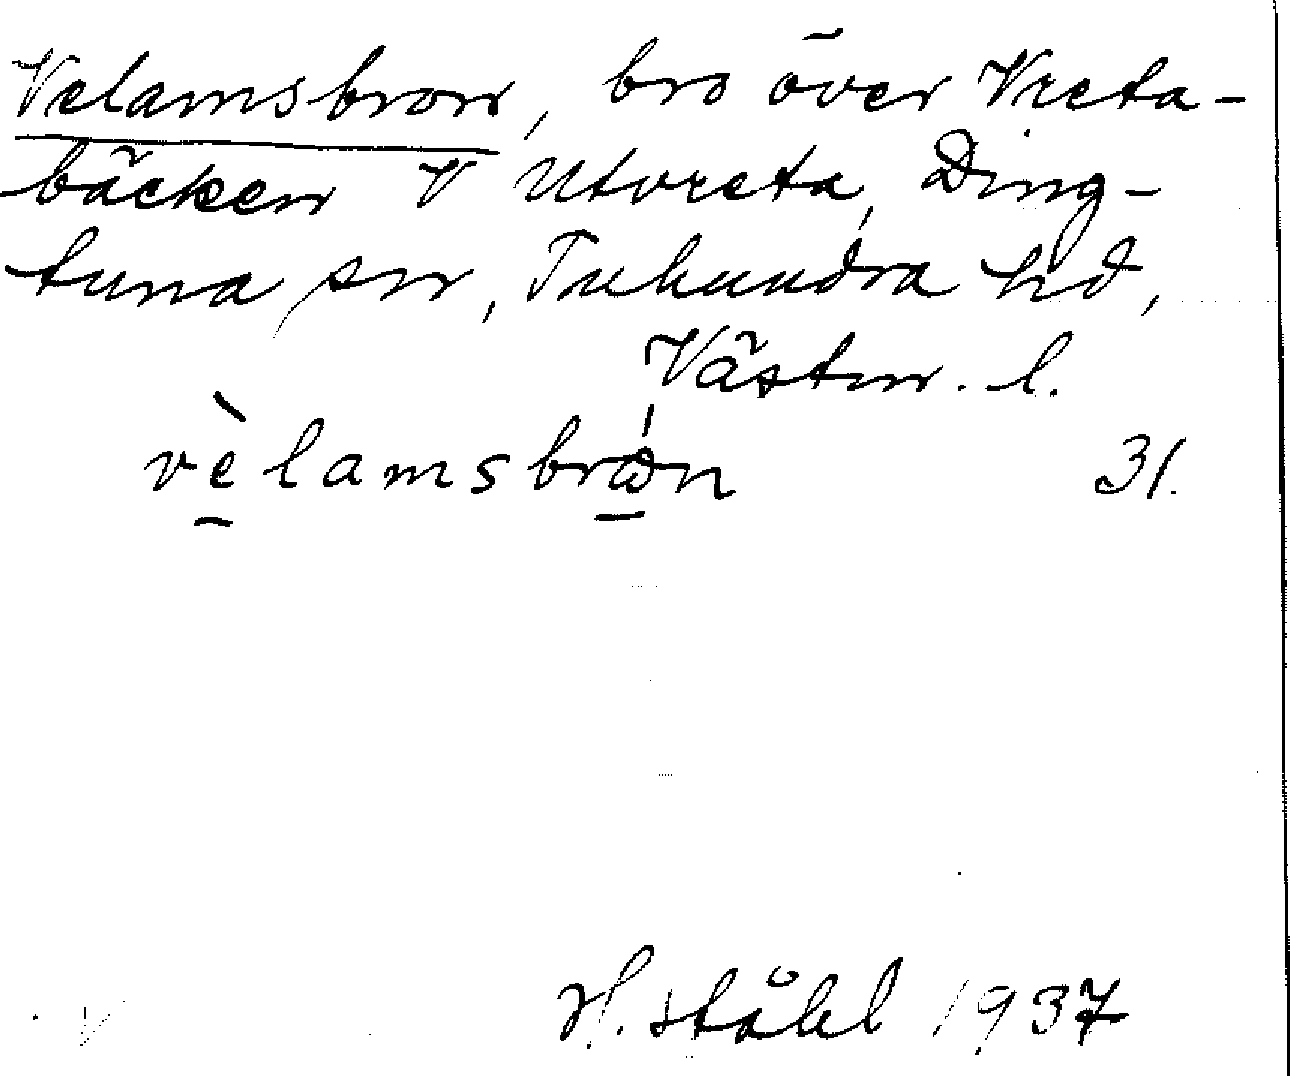 Velamsbron, bro över Vreta-
bäcken V Utvreta, Ding-
tuna sn, Tuhundra hd,
Västm. l.
vèlamsbrωn 31.
H. Ståhl 1937